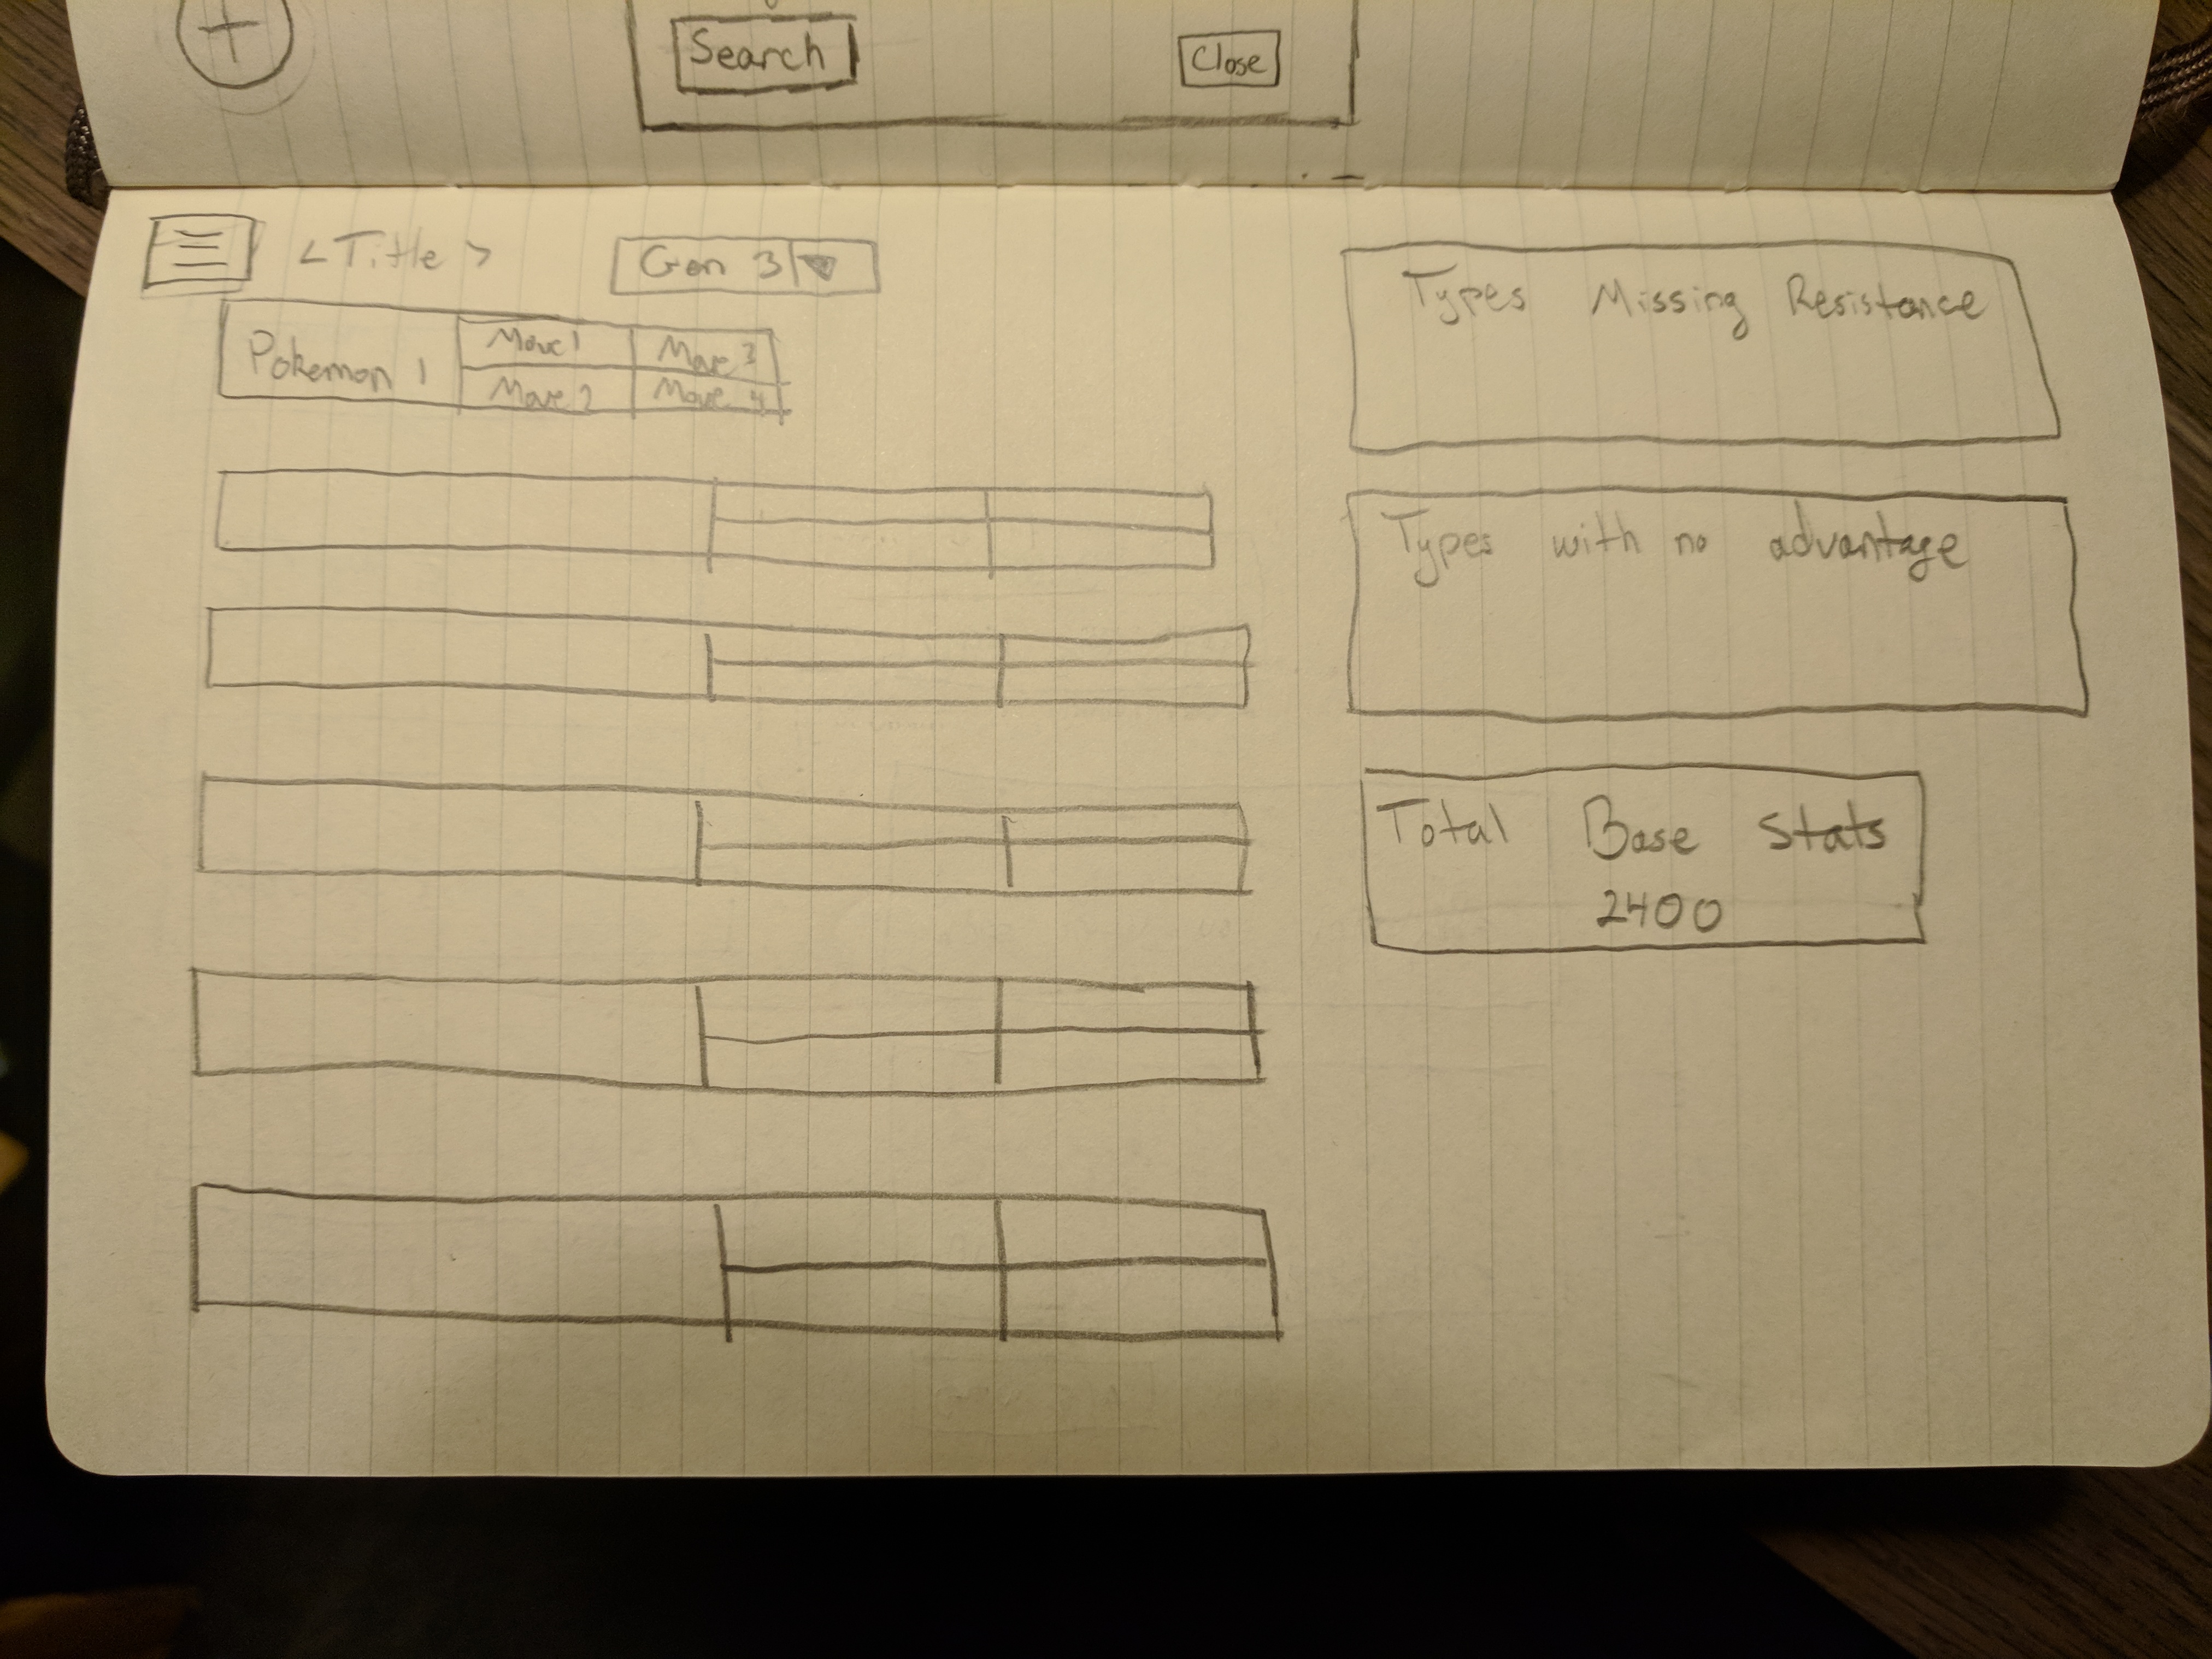 Search
Close
<Title>
Gen 3
Pokemon 1
Move 1
Move 3
Move 2
Move 4
Types Missing Resistance
Types with no advantage
Total Base Stats
2400